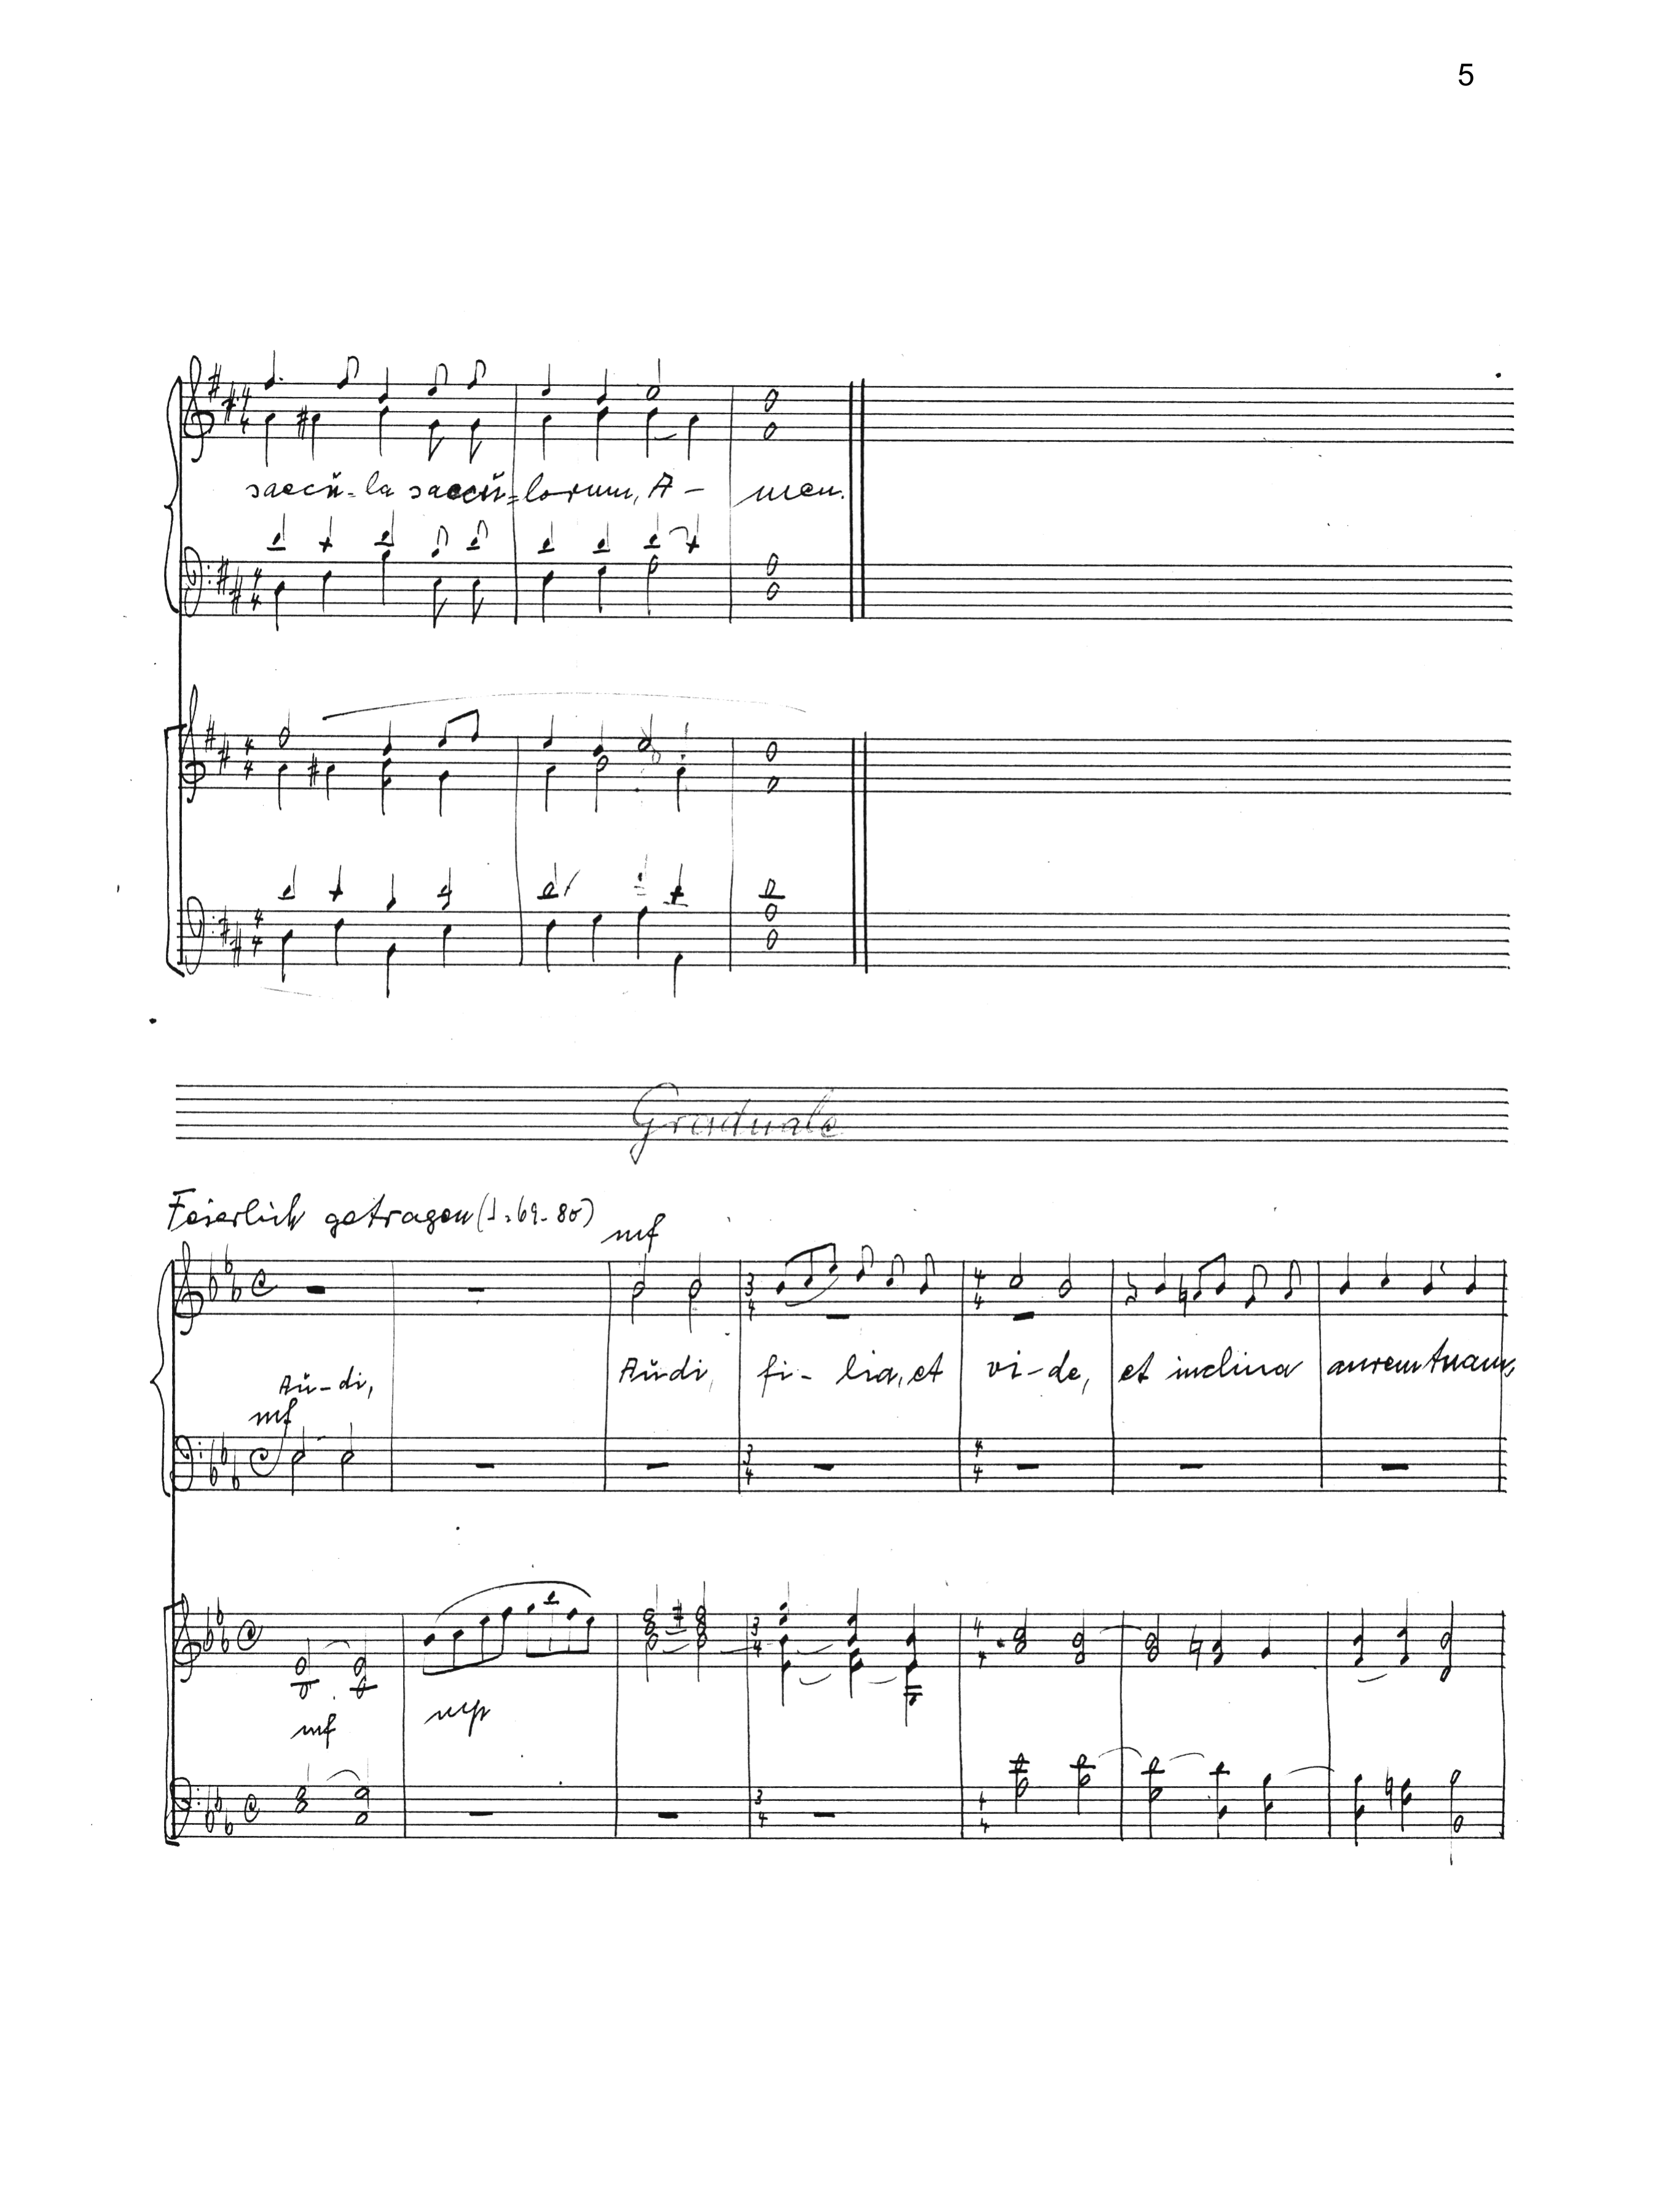 5
saecŭ-la saecŭ-lorum, A- men.
Graduale
Feierlich getragen (♩=69-80)
mf
Aŭ-di, Aŭdi, fi- lia, et vi-de, et inclina aurem tuam,
mf
mf mp